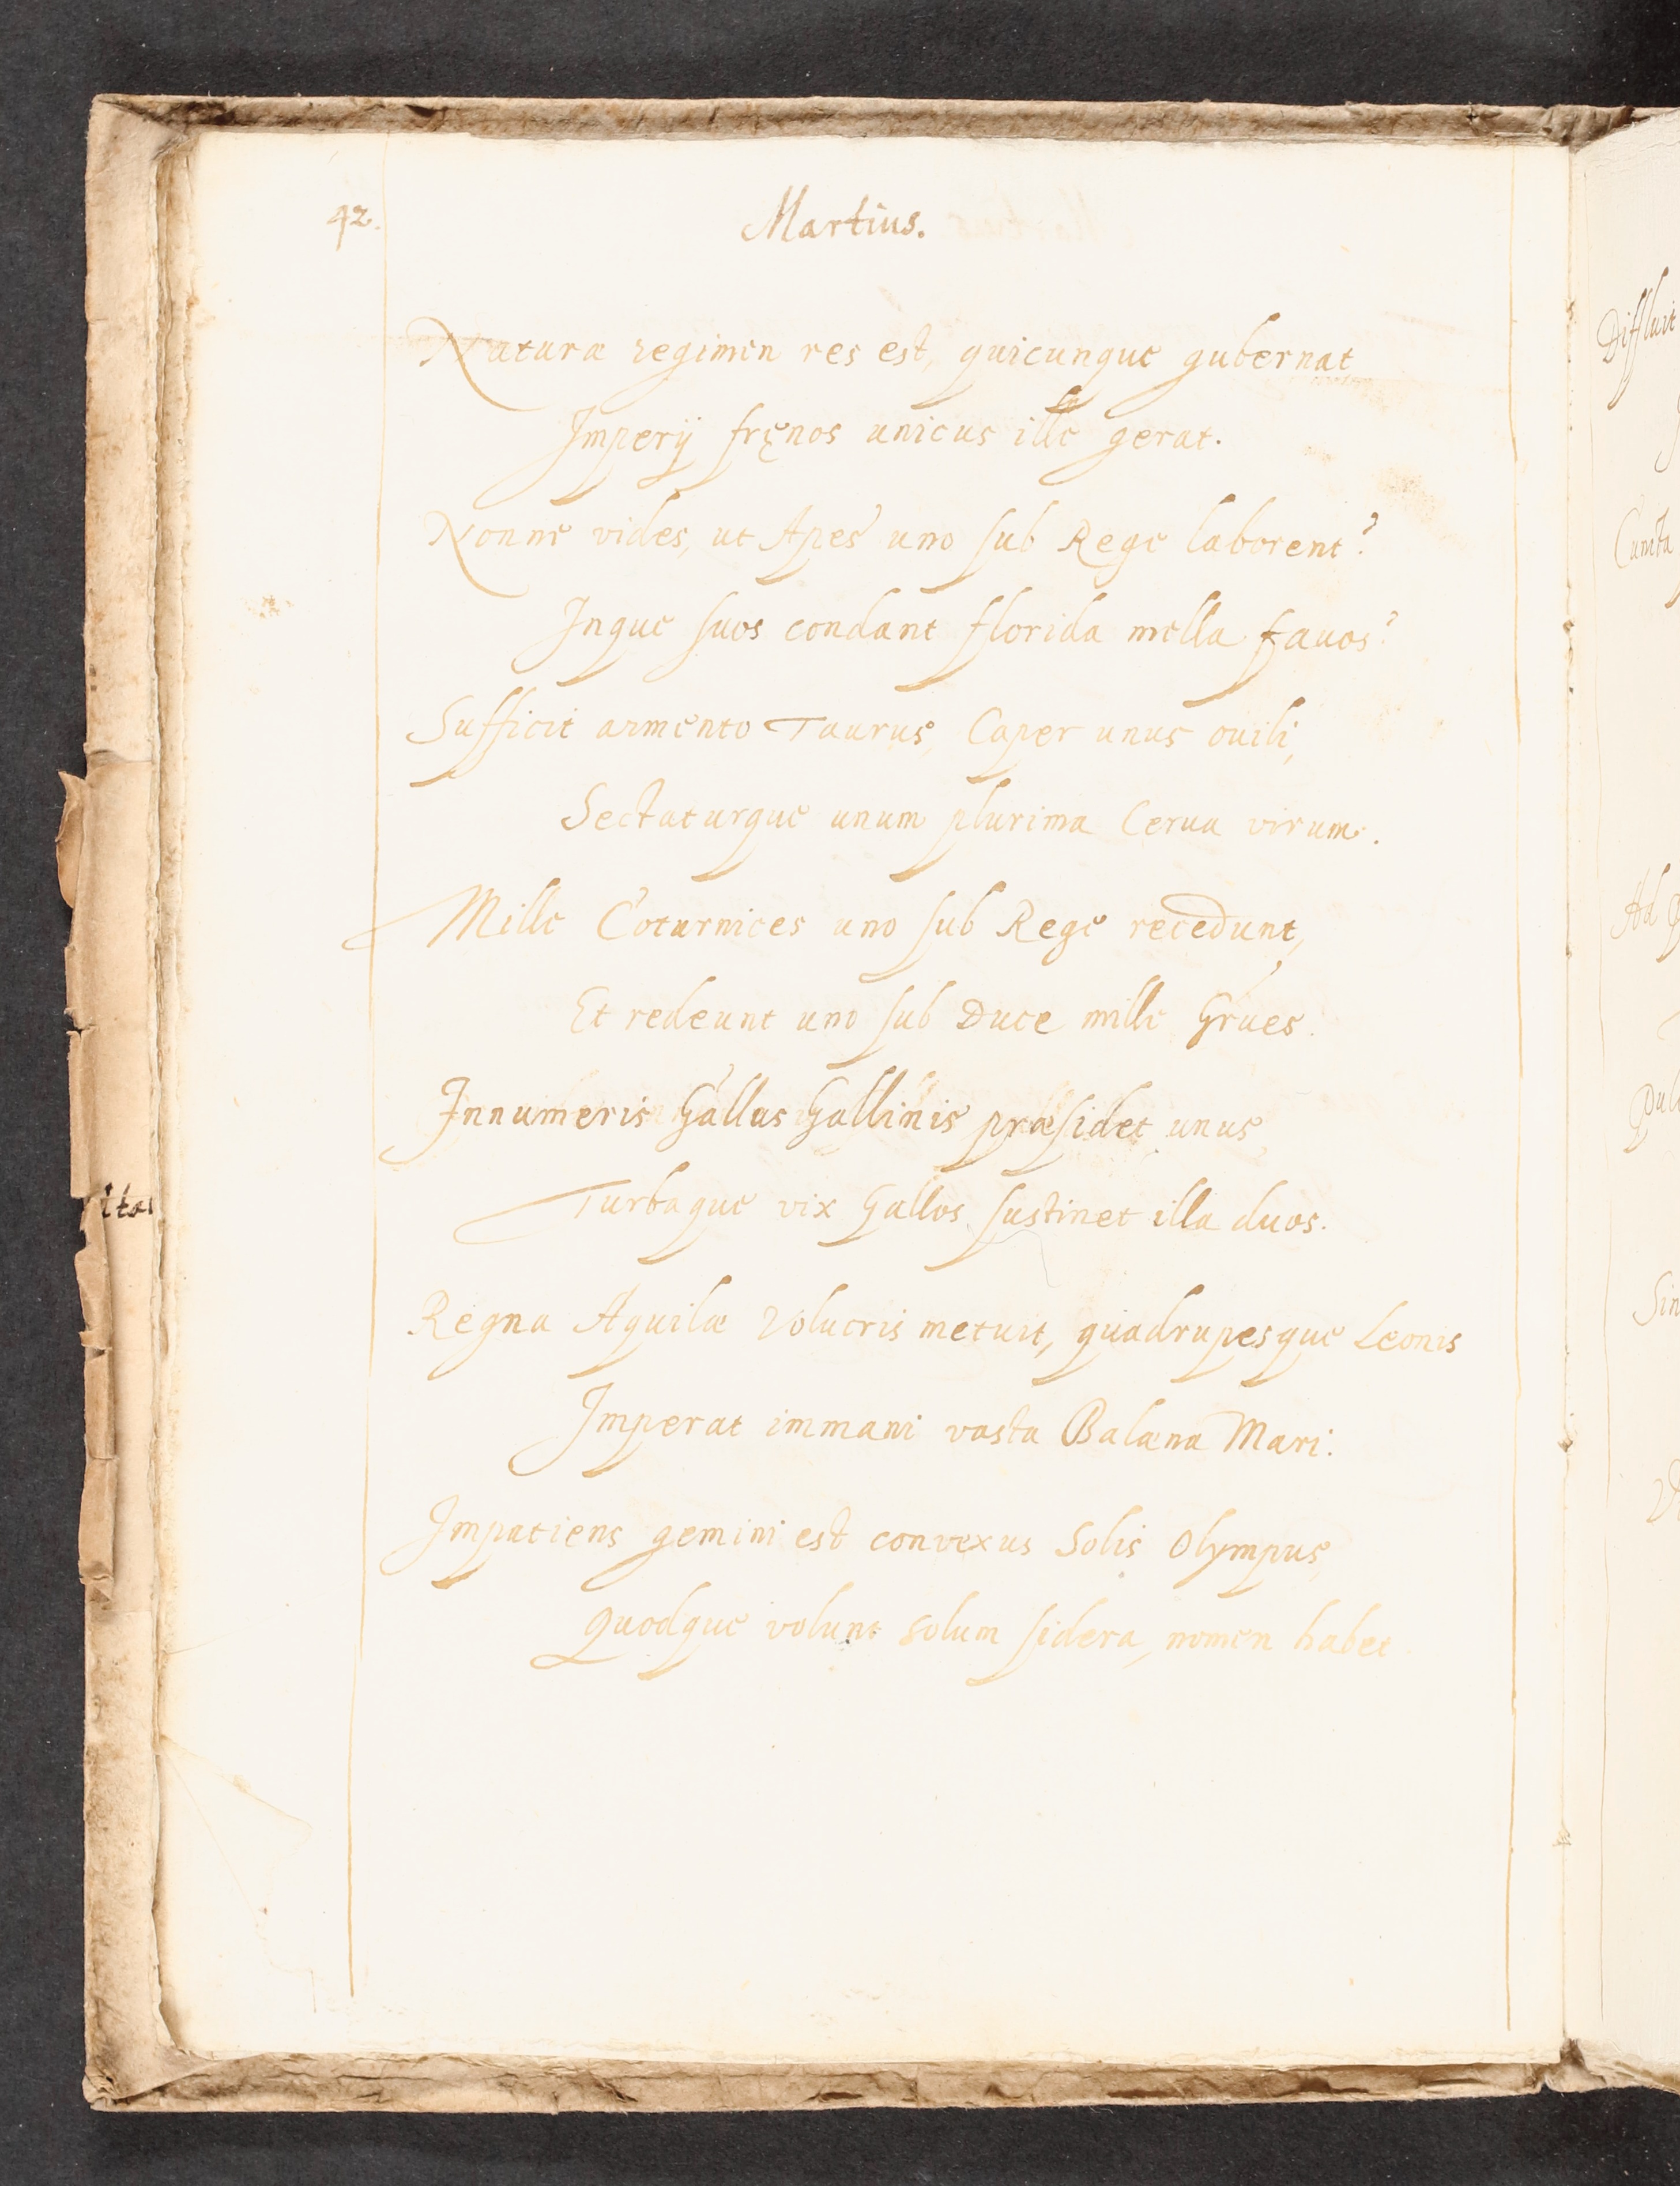 42.
Martius.
Naturæ regimen res est, quicunque gubernat
Imperij fręnos unicus ille gerat.
Nonne vides, ut Apes uno sub Rege laborent?
Inque suos condant florida mella fauos?
Sufficit armento Taurus, Caper unus ouili,
Sectaturque unum plurima Cerua virum.
Mille Coturnices uno sub Rege recedunt,
Et redeunt uno sub Duce mille Grues.
Innumeris Gallus Gallinis præsidet unus,
Turbaque vix Gallos sustinet illa duos.
Regna Aquilæ Volucris metuit, quadrupesque Leonis
Imperat immani vasta Balæna Mari:
Impatiens gemini est convexus Solis Olympus,
Quodque volunt solum sidera, nomen habet
Diffluit
Cuncta
Ad
Sin